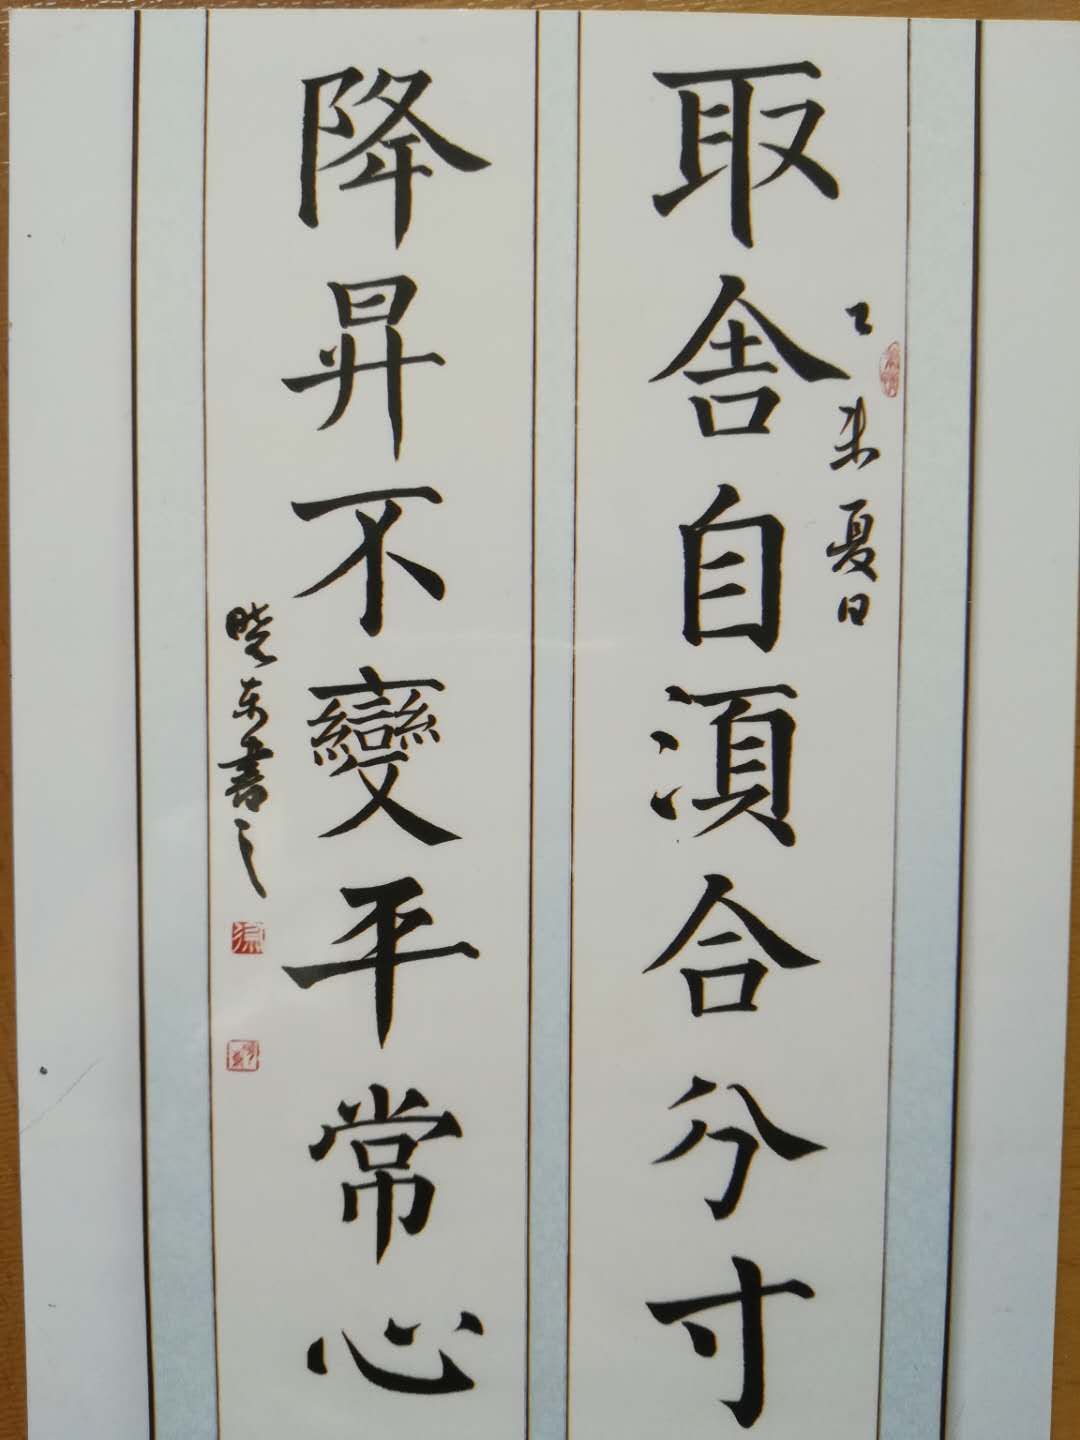 乙未夏日
取舍自須合分寸
降昇不變平常心
晓东書之